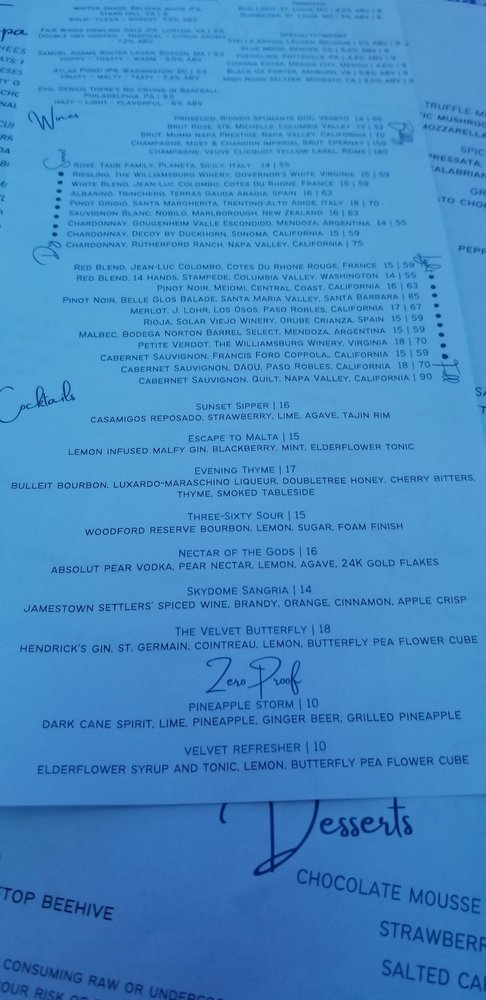 WINTER SHADE, BELGIAN WHITE IPA,
STARR HILL, VA | 8
BOLD - CLEAN - ROBUST 7.5% ABV
TOASTY - WARM 5.0% ABV
ATLAS PONI IPA, WASHINGTON, DC | 8.5
FRUITY - MALTY - TASTY 7.3% ABV
EVIL GENIUS THERE'S NO CRYING IN BASEBALL
PHILADELPHIA, PA | 8.5
HAZY - LIGHT - FLAVORFUL 6% ABV
DOMESTIC
SPECIALTY/IMPORT
Wines
PROSECCO, RIONDO SPUMANTE DOC, VENETO 14 | 55
BRUT ROSE, STE. MICHELLE, COLUMBIA VALLEY 13 | 52
BRUT, MUMM NAPA PRESTIGE, NAPA VALLEY, CALIFORNIA | 70
CHAMPAGNE, MOET & CHANDON IMPERIAL BRUT, EPERNAY | 150
CHAMPAGNE, VEUVE CLICQUOT YELLOW LABEL, REIMS | 180
ROSE, TAUB FAMILY, PLANETA, SICILY, ITALY 14 | 55
RIESLING, THE WILLIAMSBURG WINERY, GOVERNOR'S WHITE, VIRGINIA 15 | 59
WHITE BLEND, JEAN-LUC COLOMBO, COTES DU RHONE, FRANCE 15 | 59
ALBARINO, TRINCHERO, TERRAS GAUDA ABADIA, SPAIN 16 | 63
PINOT GRIGIO, SANTA MARGHERITA, TRENTINO-ALTO ADIGE, ITALY 18 | 70
SAUVIGNON BLANC, NOBILO, MARLBOROUGH, NEW ZEALAND 16 | 63
CHARDONNAY, GOUGENHEIM VALLE ESCONDIDO, MENDOZA, ARGENTINA 14 | 55
CHARDONNAY, DECOY BY DUCKHORN, SONOMA, CALIFORNIA 15 | 59
Dry CHARDONNAY, RUTHERFORD RANCH, NAPA VALLEY, CALIFORNIA | 75
RED BLEND, JEAN-LUC COLOMBO, COTES DU RHONE ROUGE, FRANCE 15 | 59
RED BLEND, 14 HANDS, STAMPEDE, COLUMBIA VALLEY, WASHINGTON 14 | 55
PINOT NOIR, MEIOMI, CENTRAL COAST, CALIFORNIA 16 | 63
PINOT NOIR, BELLE GLOS BALADE, SANTA MARIA VALLEY, SANTA BARBARA | 85
MERLOT, J. LOHR, LOS OSOS, PASO ROBLES, CALIFORNIA 17 | 67
RIOJA, SOLAR VIEJO WINERY, ORUBE CRIANZA, SPAIN 15 | 59
MALBEC, BODEGA NORTON BARREL SELECT, MENDOZA, ARGENTINA 15 | 59
PETITE VERDOT, THE WILLIAMSBURG WINERY, VIRGINIA 18 | 70
CABERNET SAUVIGNON, FRANCIS FORD COPPOLA, CALIFORNIA 15 | 59
CABERNET SAUVIGNON, DAOU, PASO ROBLES, CALIFORNIA 18 | 70
CABERNET SAUVIGNON, QUILT, NAPA VALLEY, CALIFORNIA | 90
Full
Cocktails
SUNSET SIPPER | 16
CASAMIGOS REPOSADO, STRAWBERRY, LIME, AGAVE, TAJIN RIM
ESCAPE TO MALTA | 15
LEMON INFUSED MALFY GIN, BLACKBERRY, MINT, ELDERFLOWER TONIC
EVENING THYME | 17
BULLEIT BOURBON, LUXARDO-MARASCHINO LIQUEUR, DOUBLETREE HONEY, CHERRY BITTERS,
THYME, SMOKED TABLESIDE
THREE-SIXTY SOUR | 15
WOODFORD RESERVE BOURBON, LEMON, SUGAR, FOAM FINISH
NECTAR OF THE GODS | 16
ABSOLUT PEAR VODKA, PEAR NECTAR, LEMON, AGAVE, 24K GOLD FLAKES
SKYDOME SANGRIA | 14
JAMESTOWN SETTLERS' SPICED WINE, BRANDY, ORANGE, CINNAMON, APPLE CRISP
THE VELVET BUTTERFLY | 18
HENDRICK'S GIN, ST. GERMAIN, COINTREAU, LEMON, BUTTERFLY PEA FLOWER CUBE
Zero Proof
PINEAPPLE STORM | 10
DARK CANE SPIRIT, LIME, PINEAPPLE, GINGER BEER, GRILLED PINEAPPLE
VELVET REFRESHER | 10
ELDERFLOWER SYRUP AND TONIC, LEMON, BUTTERFLY PEA FLOWER CUBE
Desserts
CHOCOLATE MOUSSE
STRAWBERR
SALTED CA
TOP BEEHIVE
CONSUMING RAW OR UNDERCO
YOUR RISK
TRUFFLE M
MUSHROO
MOZZARELLA
SPIC
PRESSATA,
CALABRIAN
GR
TO CHO
PEPP